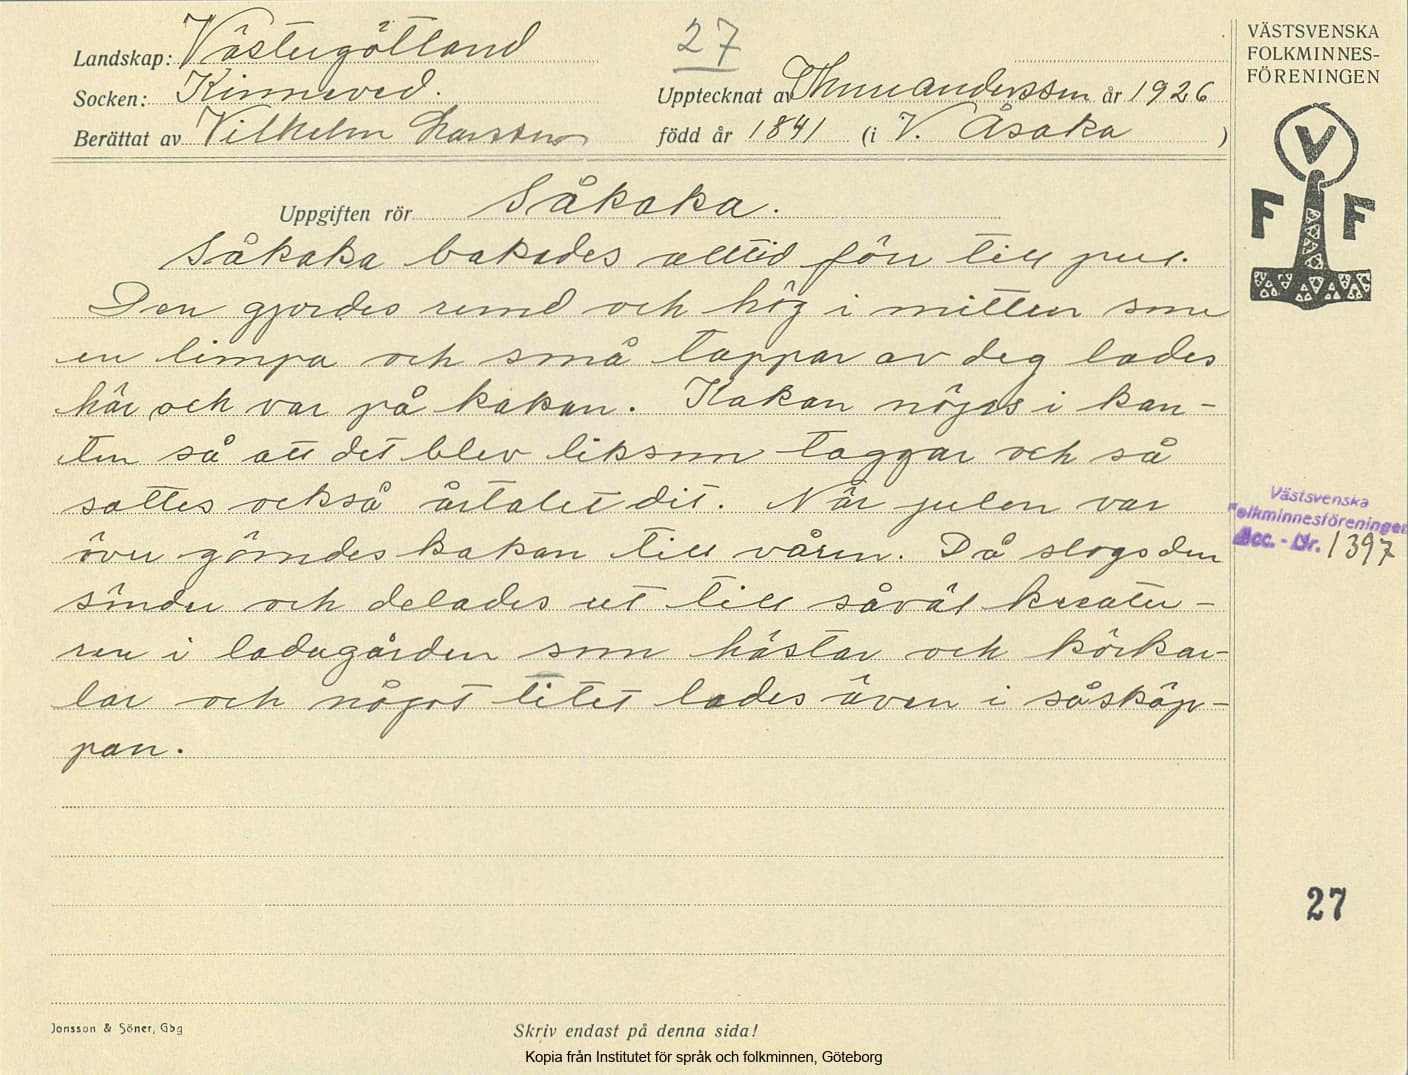 Landskap: Västergötland
27
Socken: Kinneved.
Upptecknat av Thure Andersson år 1926
Berättat av Vilhelm
född år 1841 (i V. Åsaka )
VÄSTSVENSKA
FOLKMINNES-
FÖRENINGEN
V
F F
Uppgiften rör Såkaka.
Såkaka bakades alltid förr till jul.
Den gjordes rund och hög i mitten som
en limpa och små tappar av deg lades
här och var på kakan. Kakan nöjas i kan-
ten så att det blev liksom taggar och så
sattes också årtalet dit. När julen var
över gömdes kakan till våren. Då slogs den
sönder och delades ut till såväl kreatu-
ren i ladugården som hästar och körkar-
lar och något litet lades även i såsköp-
pan.
Västsvenska
Folkminnesföreningen
Acc. - Nr. 1397
27
Jonsson & Söner, Gbg
Skriv endast på denna sida!
Kopia från Institutet för språk och folkminnen, Göteborg